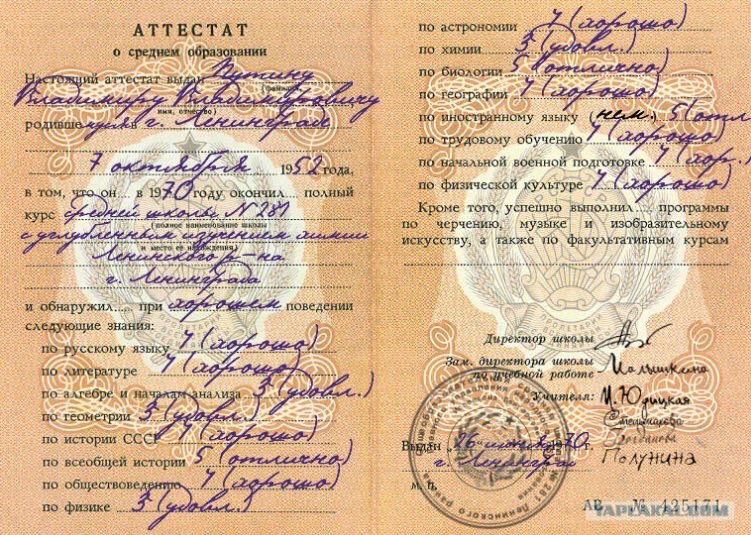 АТТЕСТАТ
о среднем образовании
Настоящий аттестат выдан Путину
(фамилия,
Владимиру Владимировичу
имя, отчество)
родившемуся в г. Ленинград
7 октября 1952 года,
в том, что он в 1970 году окончил полный
курс средней школы № 281
(полное наименование школы
с углубленным изучением химии
и место ее нахождения)
Ленинского р-на
г. Ленинграда
и обнаружил при хорошем поведении
следующие знания:
по русскому языку 4 (хорошо)
по литературе 4 (хорошо)
по алгебре и началам анализа 3 (удовл.)
по геометрии 3 (удовл.)
по истории СССР 4 (хорошо)
по всеобщей истории 5 (отлично)
по обществоведению 4 (хорошо)
по физике 3 (удовл.)
по астрономии 4 (хорошо)
по химии 3 (удовл.)
по биологии 5 (отлично)
по географии 4 (хорошо)
по иностранному языку (нем.) 5 (отл
по трудовому обучению 4 (хорошо)
по начальной военной подготовке 4 (хор.)
по физической культуре 4 (хорошо)
Кроме того, успешно выполнил программы
по черчению, музыке и изобразительному
искусству, а также по факультативным курсам
Директор школы
Зам. директора школы
по учебной работе Малышкина
Учителя: И. Юдицкая
Стельмахова
Богданова
Полунина
Выдан 26 июня 1970 г.
г. Ленинград
м. п.
АВ № 425171
YAPLAKAL.COM